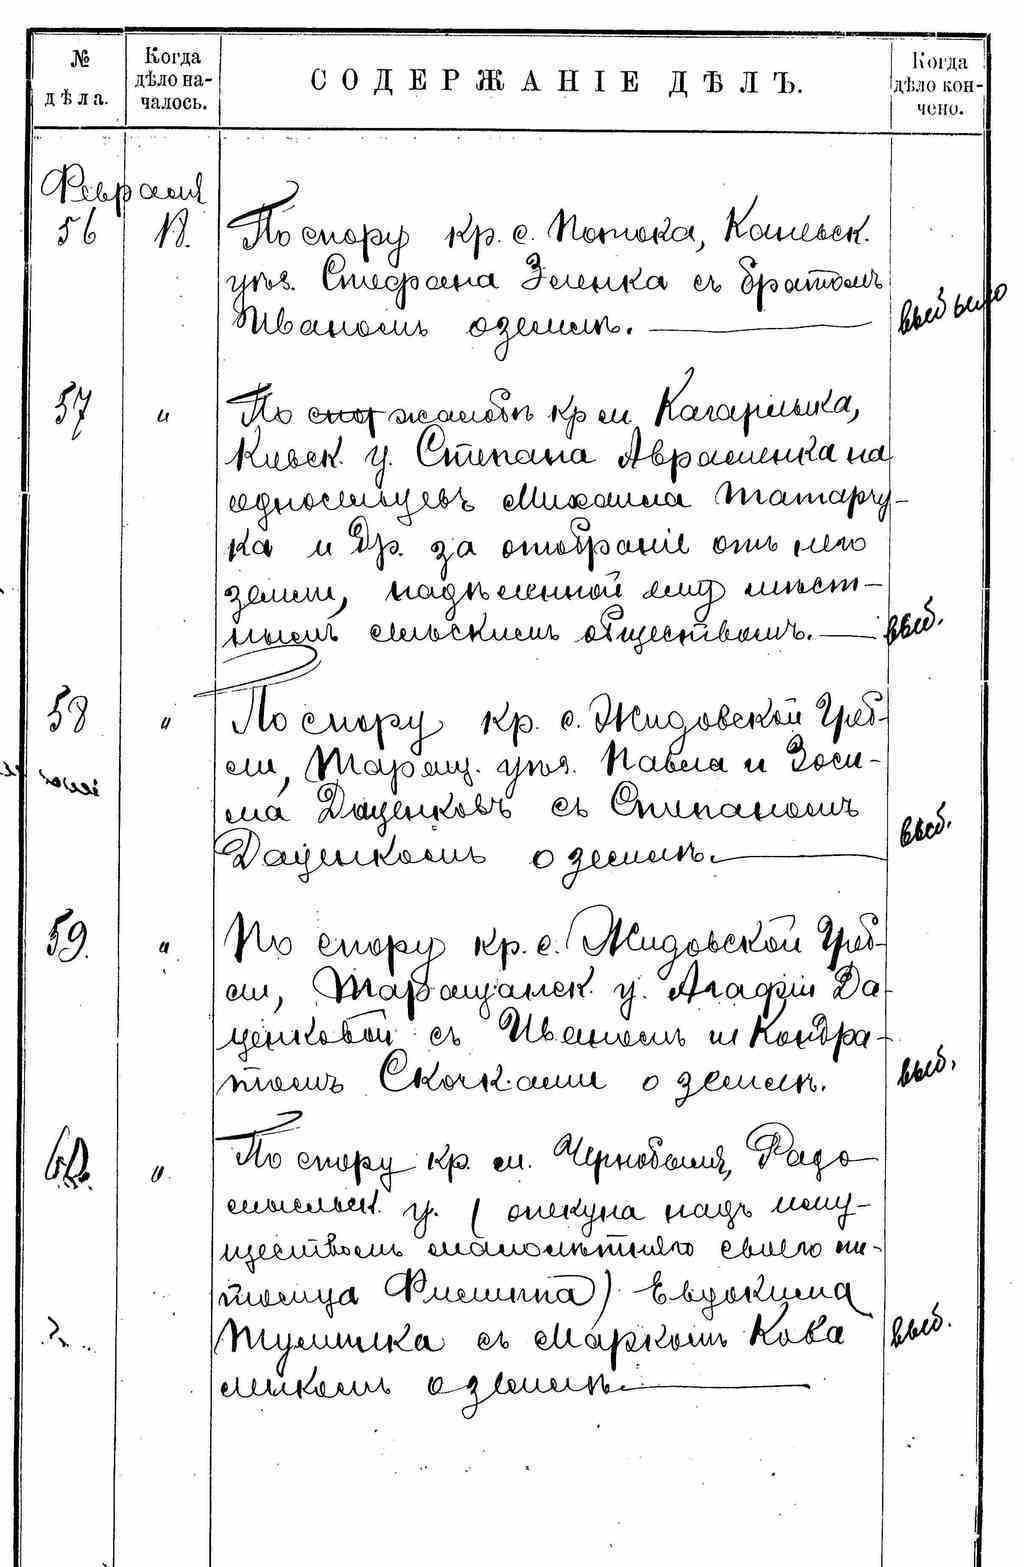 № дѣла.
Когда дѣло на-чалось.
СОДЕРЖАНІЕ ДѢЛЪ.
Когда дѣло кон-чено.
Февраля
56
По спору кр. с. Потока, Каневск.
уѣз. Стефана Зеленка съ братомъ
Иваномъ о землѣ.
выбыло
57 "
По спор жалобѣ кр м. Кагарлыка,
Киевск. у. Степана Авраменка на
односельцевъ Михаила Татарчу-
ка и Др. за отобраніе отъ него
земли, надѣленной ему мѣст-
нымъ сельскимъ обществомъ.
выб.
58 "
По спору кр. с. Жидовской Греб-
ли, Таращ. уѣз. Павла и Зоси-
ма Даценковъ съ Степаномъ
Даценкомъ о землѣ.
выб.
59. "
По спору кр. с. Жидовской Греб-
ли, Таращанск. у. Агафіи Да-
ценковой съ Иваномъ и Кондра-
томъ Скочками о землѣ.
выб.
60. "
По спору кр. м. Чернобыля, Радо
мысльск. у. (опекуна надъ иму-
ществомъ малолѣтняго своего пи-
томца Филиппа) Евдокима
Тумилка съ Маркомъ Кова
ликомъ о землѣ
выб.